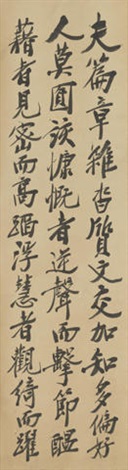 夫篇章雜沓質文交加知多偏好
人莫圓該慷慨者逆聲而擊節醞
藉者見密而高蹈浮慧者觀綺而躍